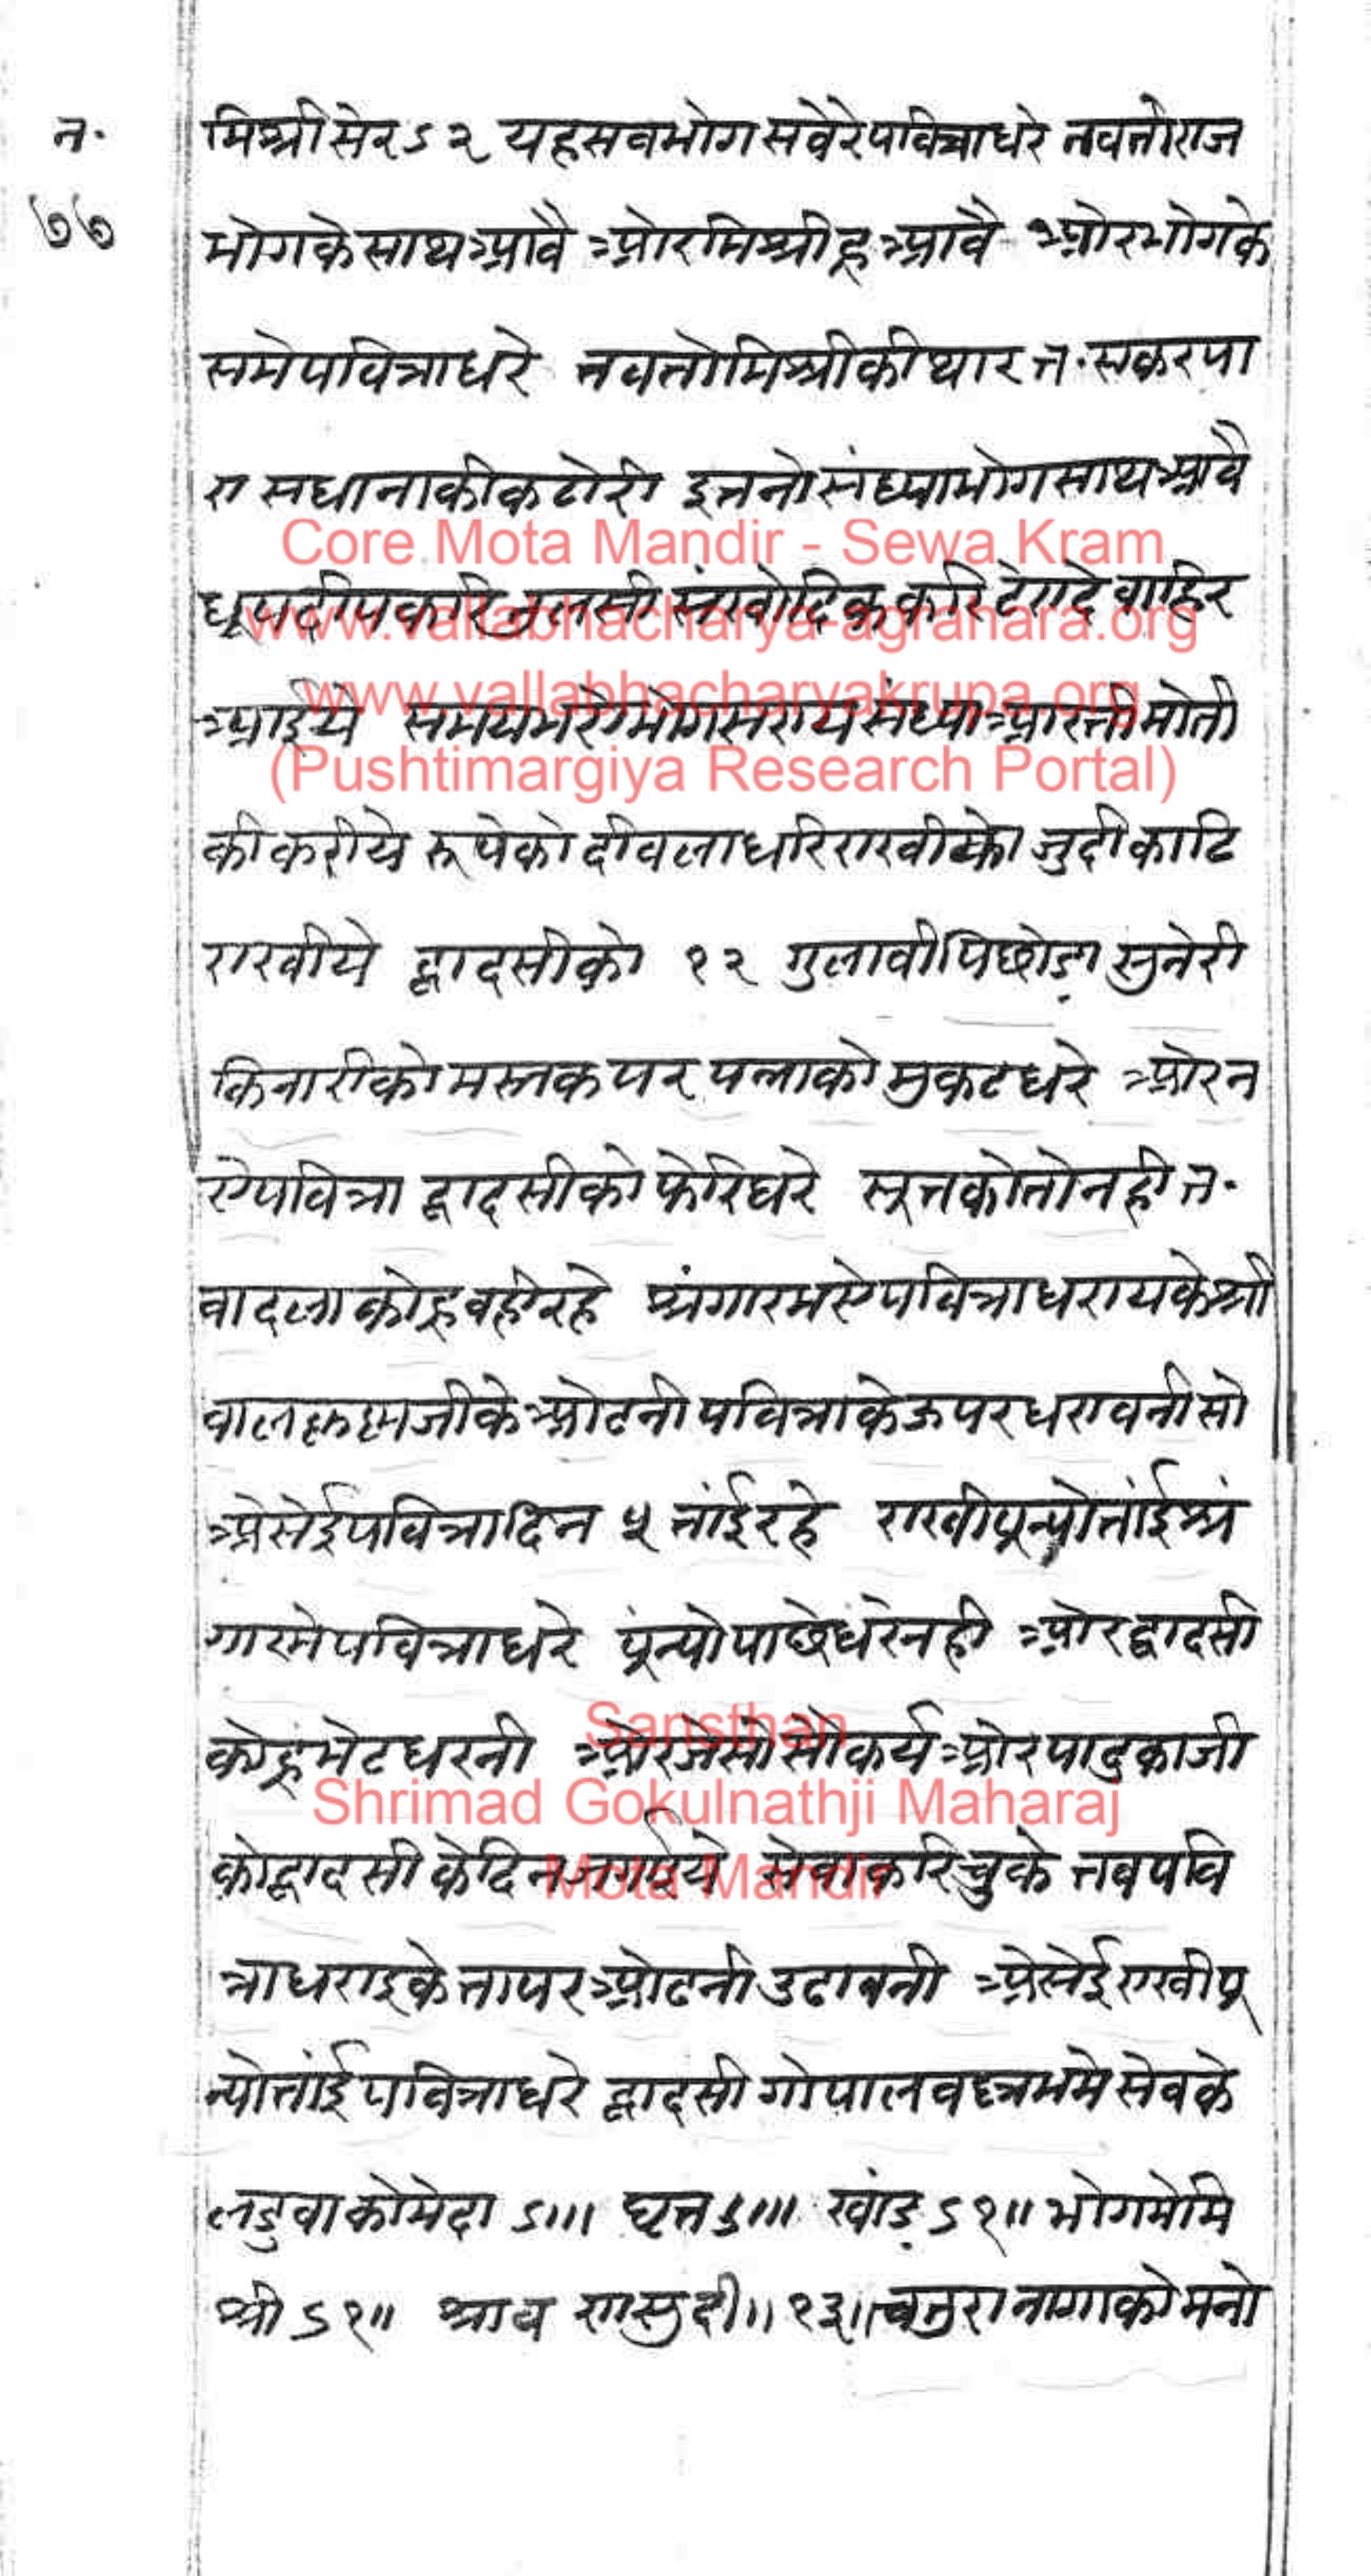 न.
७७
मिश्री सेर ऽ२ यह सब भोग सवेरे पवित्रा धरे तब तो राज
भोग के साथ आवै ओर मिश्री हू आवै ओर भोग के
समे पवित्रा धरे तब तो मिश्री की थार त. सकरपा
रा सधाना की कटोरी इतनो संध्या भोग साथ आवै
धूप दीप करि तुलसी संखोदिक करि टेरा दे बाहिर
आईये समय भये भोग सराय संध्या आरती मोती
की करीये रूपे को दीवला धरि राखी को जुदी काढि
राखीये द्वादसी को १२ गुलाबी पिछोड़ा सुनेरी
किनारी को मस्तक पर पन्ना को मुकट धरे ओर न
ऐ पवित्रा द्वादसी को फेरि धरे सूत को तो नही त.
वादला को हू वही रहे श्रंगार में ऐ पवित्रा धराय के श्री
बालकृष्ण जी के ओढनी पवित्रा के ऊपर धरावनी सो
ऐसेई पवित्रा दिन ५ तांई रहे राखी पून्यो तांई श्रं
गार में पवित्रा धरे पूंन्यो पाछे धरे नही ओर द्वादसी
को हूं भेट धरनी ओर जेसो सोकर्य ओर पादुका जी
को द्वादसी के दिन सेवा करि चुके तब पवि
त्रा धराइ के ता पर ओढनी उढावनी ऐसेई राखी पू
न्यो तांई पवित्रा धरे द्वादसी गोपालवल्लभ में सेव के
लडुवा को मेदा ऽ॥। घृत ऽ॥। खांड़ ऽ१॥ भोग में मि
श्री ऽ१॥ श्रावण सुदी ॥ १३ ॥ चतुरा नागा को मनो
Core Mota Mandir - Sewa Kram
www.vallabhacharya-agrahara.org
www.vallabhacharyakrupa.org
(Pushtimargiya Research Portal)
Sansthan
Shrimad Gokulnathji Maharaj
Mota Mandir